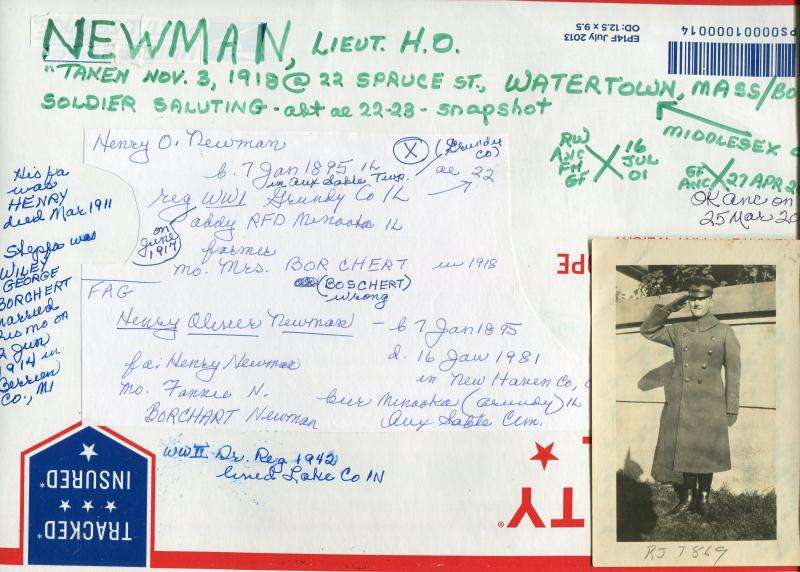 NEWMAN, LIEUT. H.O.
"TAKEN NOV. 3, 1918 @ 22 SPRUCE ST., WATERTOWN, MASS/BO
SOLDIER SALUTING - abt ae 22-23 - snapshot
MIDDLESEX
EP14F July 2013
OD: 12.5 x 9.5
PS00001000014
RW
ANC
FH
GF
16
JUL
01
GF
ANC
27 APR 2
OK anc on
25 Mar 20
Henry O. Newman
b. 7 Jan 1895 IL
in Aux Sable Twp.
X
(Grundy
Co)
ae 22
reg WWI Grundy Co IL
on
June
1917
addy RFD Minooka IL
farmer
mo. Mrs. BORCHERT in 1918
(BOSCHERT)
- wrong
His fa
was
HENRY
died Mar 1911
Steppa was
WILEY
GEORGE
BORCHERT
married
his mo on
2 Jun
1914 in
Berrien
Co., MI
FAG
Henry Oliver Newman - b 7 Jan 1895
fa: Henry Newman
d. 16 Jan 1981
in New Haven Co,
mo. Fannie N.
BORCHART Newman
bur Minooka (Grundy) IL
Aux Sable Cem.
WWII Dr. Reg 1942
lived Lake Co IN
TRACKED
INSURED
OPE
TY
RJ 7869